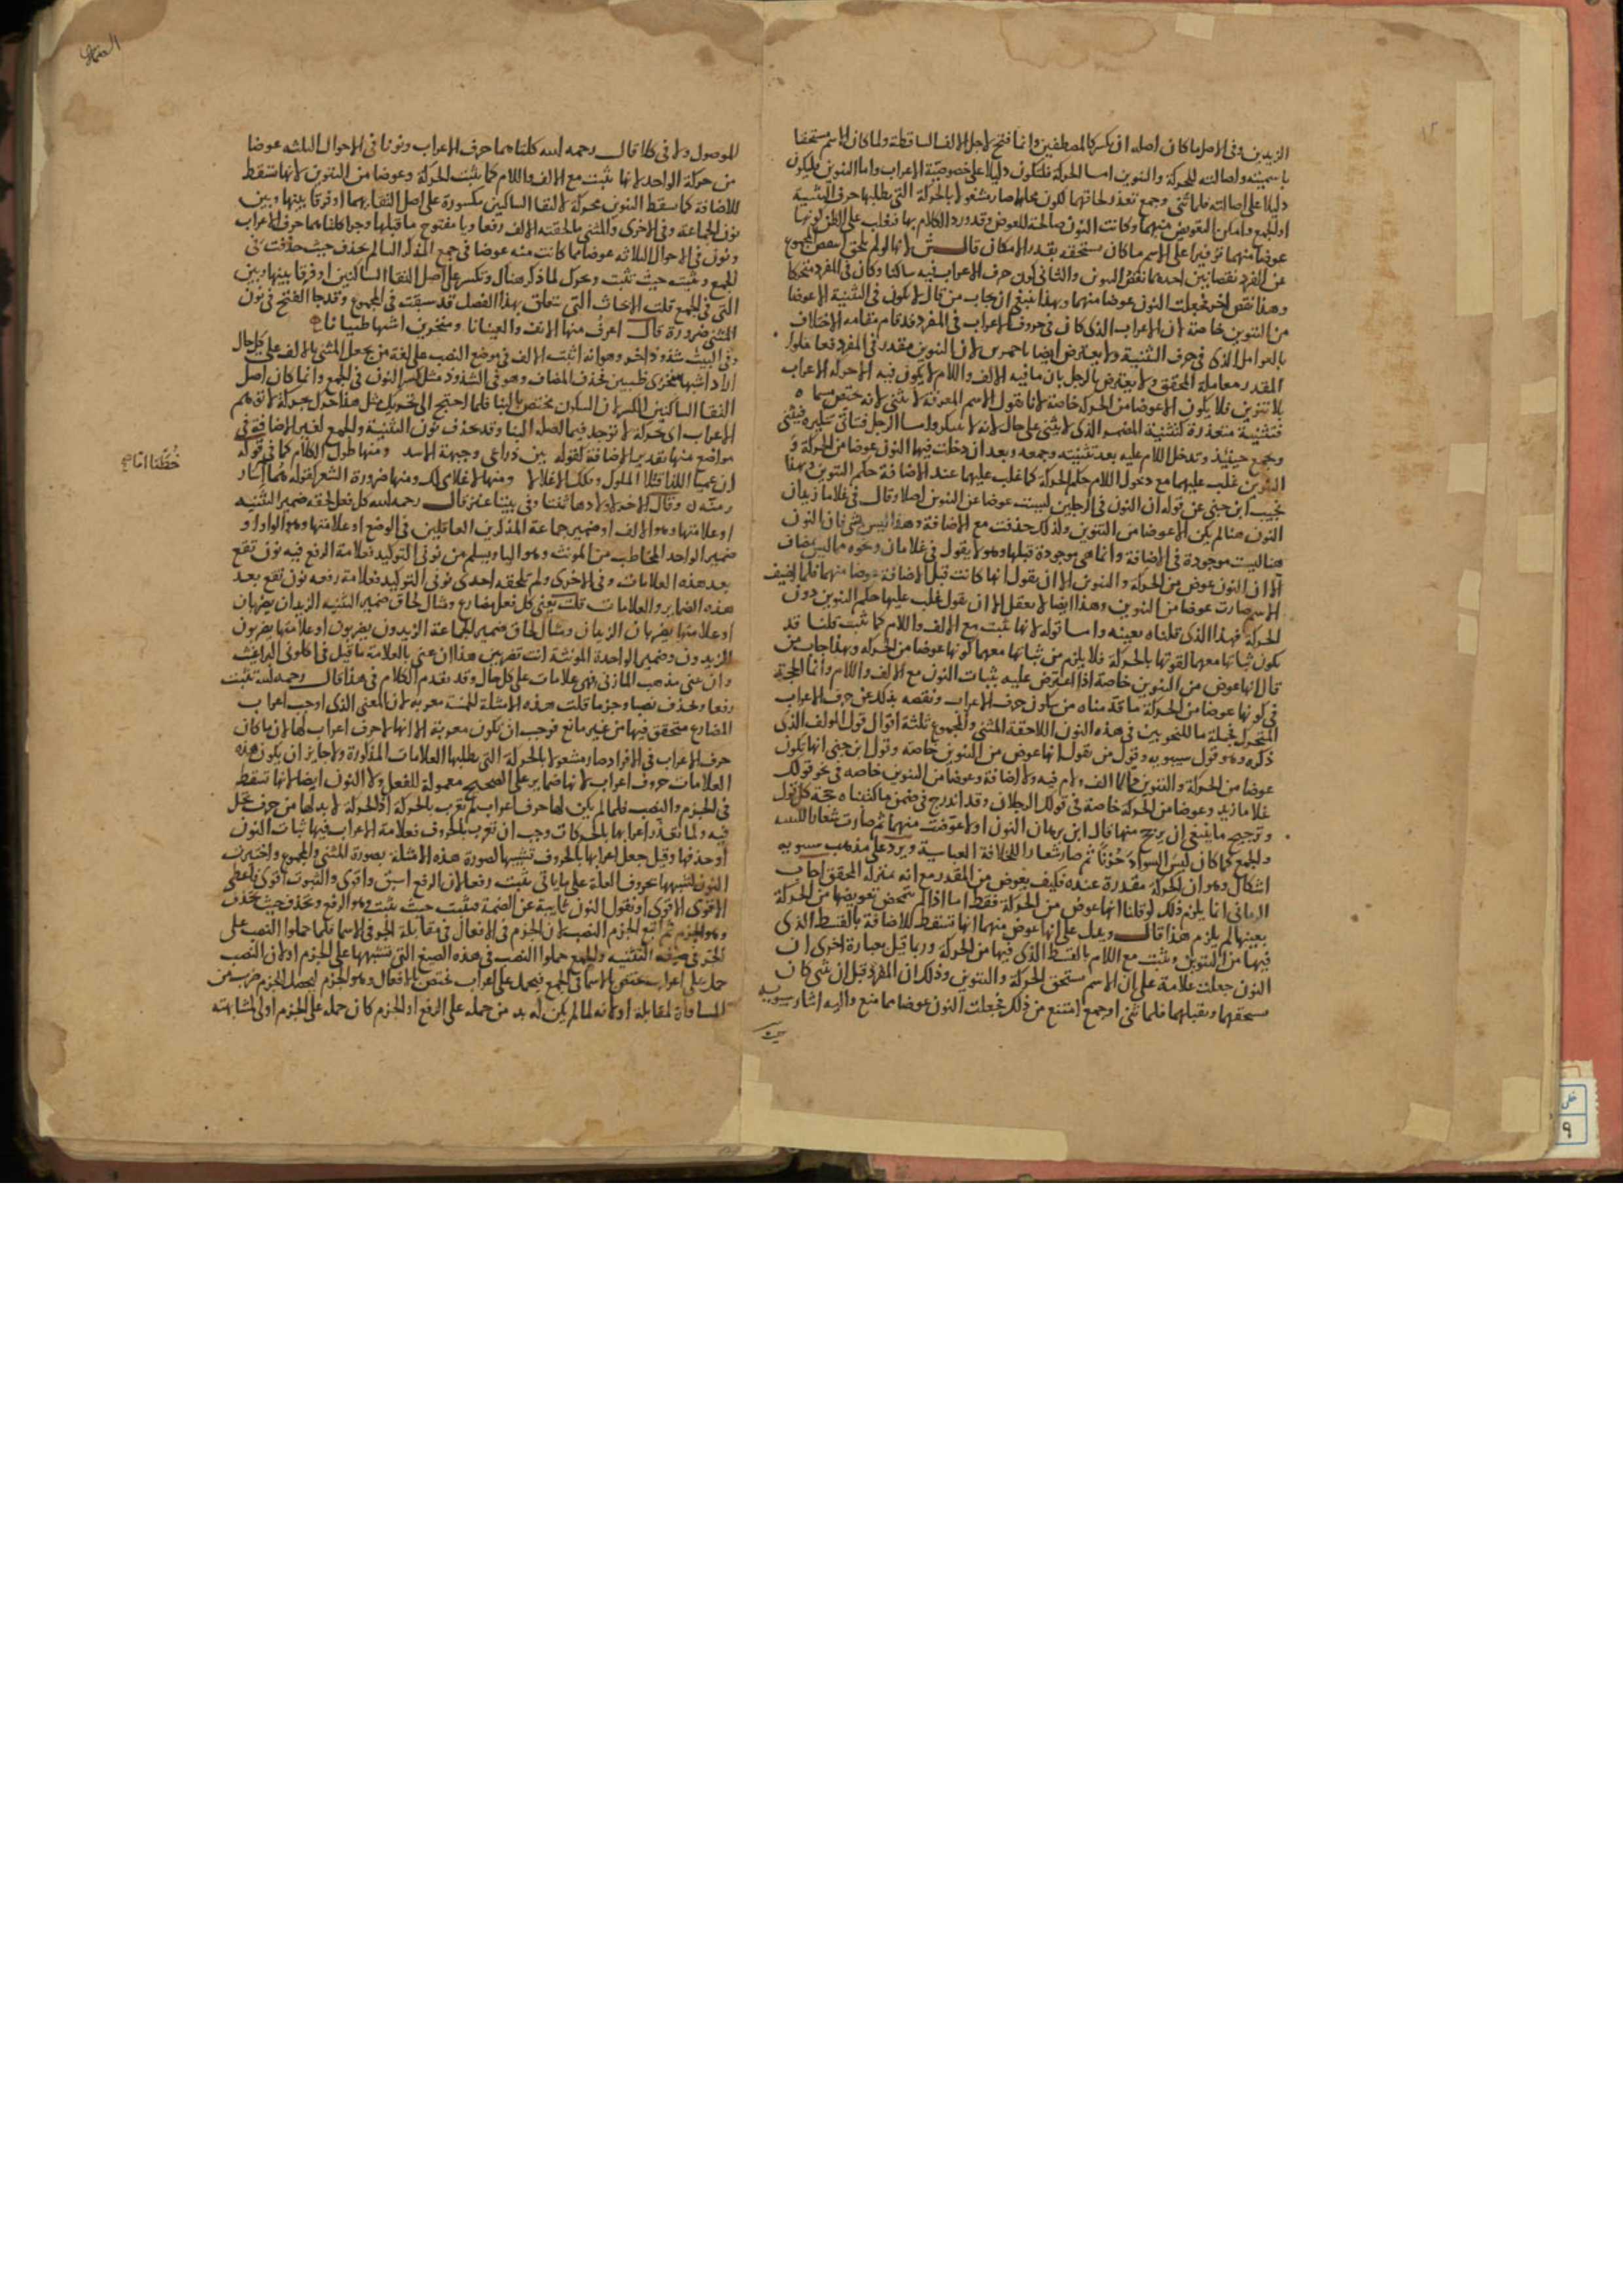 الزيدين وفى الاصل ما كان اصله ان يكسر كالمصطفين وانما فتح لاجل الالف الساقطة ولما كان الاسم مستحقا
باسميته واصالته للحركة والتنوين اما الحركة فلتكون دليلا على خصوصية الاعراب واما التنوين فليكون
دليلا على اصالته فلما ثنى وجمع تعذر لحاقهما لكون محلهما صار مشغولا بالحركة التى يطلبها حرف التثنية
او الجمع وامكن التعويض منهما وكانت النون صالحة للعوض وقد ورد الكلام بها فغلب على الظن كونها
عوضا منهما توفيرا على الاسم ما كان يستحقه بقدر الامكان قال لانها لو لم تلحق لنقص المجموع
عن المفرد نقصانين احدهما نقص التنوين والثانى كون حرف الاعراب فيه ساكنا وكان فى المفرد متحركا
وهذا نقص اخر فجعلت النون عوضا منهما وبهذا ينبغى ان يجاب من قال لا يكون فى التثنية الا عوضا
من التنوين خاصة لان الاعراب الذى كان فى حروف الاعراب فى المفرد قد قام مقامه الاختلاف
بالعوامل الذى فى حرف التثنية ولا يعترض ايضا باحمرين لان التنوين مقدر فى المفرد فعاملوا
المقدر معاملة المحقق ولا يعترض بالرجل بان ما فيه الالف واللام لا يكون فيه الا حركة الاعراب
بلا تنوين فلا يكون الا عوضا من الحركة خاصة لانا نقول الاسم المعرفة لا يثنى لانه مختص
فتثنيته متعذرة كتثنية المضمر الذى لا يثنى على حال لانه لا يتنكر واما الرجل فيتأتى تنكيره فيثنى
ويجمع حينئذ وتدخل اللام عليه بعد تثنيته وجمعه وبعد ان دخلت فيها النون عوضا من الحركة و
التنوين غلب عليهما مع دخول اللام حكم الحركة كما غلب عليهما عند الاضافة حكم التنوين وبهذا
نجيب ابن جنى عن قوله ان النون فى الرجلين ليست عوضا عن التنوين اصلا وقال فى غلاما زيد ان
النون هنا لم يكن الا عوضا من التنوين ولذلك حذفت مع الاضافة وهذا ليس بشى فان النون
هنا ليست موجودة فى الاضافة وانما هى موجودة قبلها وهو لا يقول فى غلامان ونحوه مما ليس بمضاف
الا ان النون عوض من الحركة والتنوين الا ان يقول انها كانت قبل الاضافة عوضا منهما فلما اضيف
الاسم صارت عوضا من التنوين وهذا ايضا لا يعقل الا ان يقول غلب عليها حكم التنوين دون
الحركة فهذا الذى قلناه بعينه واما قوله لانها تثبت مع الالف واللام كما تثبت قلنا قد
يكون ثباتها معهما لقوتها بالحركة فلا يلزم من ثباتها معهما كونها عوضا من الحركة وبهذا جاب من
قال انها عوض من التنوين خاصة اذا اعترض عليه بثبات النون مع الالف واللام وانما الحجة
فى كونها عوضا من الحركة ما قدمناه من سكون حرف الاعراب ونقصه بذلك عن حرف الاعراب
المتحرك فجملة ما للنحويين فى هذه النون اللاحقة المثنى والمجموع ثلثة اقوال قول المولف الذى
ذكره وهو قول سيبويه وقول من يقول انها عوض من التنوين خاصة وقول ابن جنى انها تكون
عوضا من الحركة والتنوين فيما لا الف ولام فيه ولا اضافة وعوضا من التنوين خاصه فى نحو قولك
غلاما زيد وعوضا من الحركة خاصة فى قولك الرجلان وقد اندرج فى ضمن ما كتبناه حجة كل قول
وترجيح ما ينبغى ان يرجح منها قال ابن برهان النون اولا عوضت منهما ثم صارت شعارا للتثنية
والجمع كما كان لبس السواد حزنا ثم صار شعارا للخلافة العباسية ويرد على مذهب سيبويه
اشكال وهو ان الحركة مقدرة عنده فكيف يعوض من المقدر مع انه بمنزلة المحقق اجاب
الرمانى انما يلزم ذلك لو قلنا انها عوض من الحركة فقط اما اذا لم يتمحض تعويضها من الحركة
بعينها لم يلزم هذا قال ويدل على انها عوض منهما انها تسقط للاضافة بالقسط الذى
فيها من التنوين وتثبت مع اللام بالقسط الذى فيها من الحركة وربما قيل بعبارة اخرى ان
النون جعلت علامة على ان الاسم مستحق الحركة والتنوين وذلك ان المفرد قبل ان يثنى كان
يستحقهما ويقبلهما فلما ثنى او جمع امتنع من ذلك فجعلت النون عوضا مما منع واليه اشار سيبويه
للموصول ولا فى كلا قال رحمه الله كلتاهما حرف الاعراب ونونا فى الاحوال الثلثه عوضا
من حركة الواحد لانها تثبت مع الالف واللام كما تثبت الحركة وعوضا من التنوين لانها تسقط
للاضافة كما يسقط التنوين محركة لالتقا الساكنين مكسورة على اصل التقائهما او فرقا بينها وبين
نون الجماعة وفى الاخرى والمثنى ما لحقته الف رفعا ويا مفتوح ما قبلها وجرا كلتاهما حرف الاعراب
ونون فى الاحوال الثلاثه عوضا مما كانت منه عوضا فى جمع المذكر السالم تحذف حيث حذفت فى
الجمع وتثبت حيث تثبت وتحرك لما ذكر هناك وتكسر على اصل التقا الساكنين او فرقا بينها وبين
التى فى الجمع قلت الابحاث التى تتعلق بهذا الفصل قد سبقت فى المجموع وقد جا الفتح فى نون
المثنى ضرورة قال اعرف منها الانف والعينانا ومنخرين اشبها ظبيانا
وفى البيت شذوذ اخر وهو انه اثبت الالف فى موضع النصب على لغة من يجعل المثنى بالالف على كل حال
اراد اشبها منخرى ظبيين فحذف المضاف وهو فى الشذوذ مثل كسر النون فى الجمع وانما كان اصل
التقا الساكنين الكسر لان السكون مختص بالبنا فلما احتيج الى تحريك مثل هذا حرك بحركة لا توهم
الاعراب اى بحركة لا توجد فيما اصله البنا وقد تحذف نون التثنية والجمع لغير الاضافة فى
مواضع منها تقدير الاضافة كقوله بين ذراعى وجبهة الاسد ومنها طول الكلام كما فى قوله
ان عمىّ اللذا قتلا الملوك وفككا الاغلالا ومنها لا غلامى لك ومنها ضرورة الشعر كقوله هما اسار
ومنّه وقال الاخر وفى بيتا عنز قال رحمه الله كل فعل لحقه ضمير التثنيه
او علامتها وهو الالف او ضمير جماعة المذكرين العاقلين فى الوضع او علامتها وهو الواو او
ضمير الواحد المخاطب من المونث وهو اليا ويسلم من نونى التوكيد فعلامة الرفع فيه نون تقع
بعد هذه العلامات وفى الاخرى ولم تلحقه احدى نونى التوكيد فعلامة رفعه نون تقع بعد
هذه الضماير والعلامات قلت يعنى كل فعل مضارع ومثال لحاق ضمير التثنيه الزيدان يضربان
او علامتها يضربان الزيدان ومثال لحاق ضمير الجماعة الزيدون يضربون او علامتها يضربون
الزيدون وضمير الواحدة المونثة انت تضربين هذا ان عنى بالعلامة ما قيل فى اكلونى البراغيث
وان عنى مذهب المازنى فهى علامات على كل حال وقد تقدم الكلام فى هذا قال رحمه الله تثبت
رفعا وتحذف نصبا وجزما قلت هذه الامثلة الخمسة معربة لان المعنى الذى اوجب اعراب
المضارع متحقق فيها من غير مانع فوجب ان تكون معربة الا انها لا حرف اعراب لها لان ما كان
حرف الاعراب فى الافراد صار مشغولا بالحركة التى يطلبها العلامات المذكورة ولا جايز ان يكون هذه
العلامات حروف اعراب لانها ضماير على الصحيح معمولة للفعل ولا النون ايضا لانها تسقط
فى الجزم والنصب فلما لم يكن لها حرف اعراب لم تعرب بالحركة اذ الحركة لا بد لها من حرف تحل
فيه ولما تعذر اعرابها بالحركات وجب ان تعرب بالحروف فعلامة الاعراب فيها ثبات النون
او حذفها وقيل جعل اعرابها بالحروف تشبيها لصورة هذه الامثلة بصورة المثنى والمجموع واختيرت
النون لشبهها بحروف العلة على ما ياتى تثبت رفعا لان الرفع اسبق واقوى والثبوت اقوى فاعطى
الاقوى الاقوى او نقول النون نائبة عن الضمة فتثبت حيث تثبت وهو الرفع وتحذف حيث تحذف
وهو الجزم ثم اتبع الجزم النصب لان الجزم فى الافعال فى مقابلة الجر فى الاسما فلما حملوا النصب على
الجر فى التثنيه والجمع حملوا النصب فى هذه الصيغ التى تشبهها على الجزم اولان النصب
حمل على اعراب مختص بالاسما فى الجمع فيحمل على اعراب مختص بالافعال وهو الجزم ليحصل الجزم ضرب من
المساواة لمقابلة اولانه لما لم يكن له بد من حمله على الرفع او الجزم كان حمله على الجزم اولى لمشابهته
خُطَّتا امّا
٩